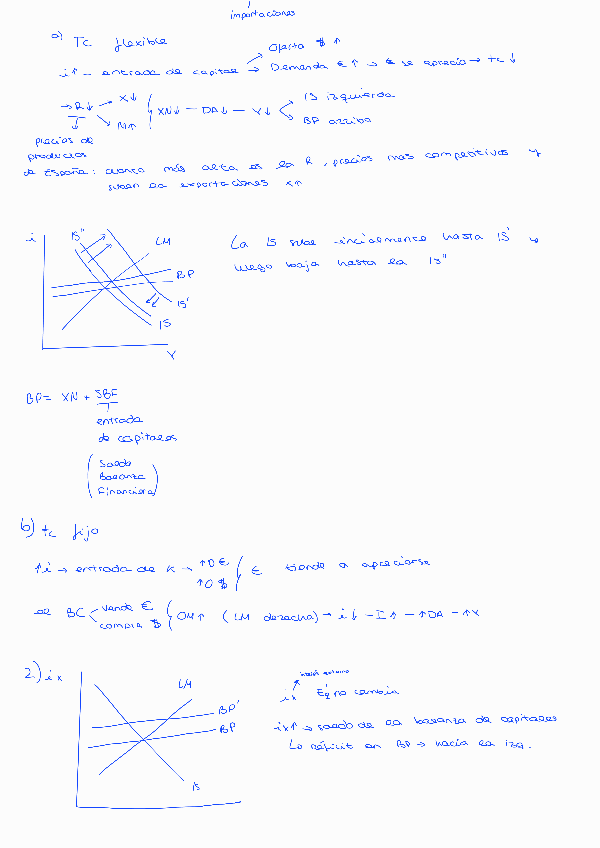 importaciones
a) Tc flexible
Oferta $ ↑
i↑ → entrada de capital → Demanda € ↑ → € se aprecia → tc ↓
→ R↓ → X↓ XN↓ — DA↓ — Y↓ IS izquierda
M↑ BP arriba
precios de
productos
de España: cuanto más alta es la R, precios mas competitivos y
suben las exportaciones X↑
i IS'' LM
BP
IS'
IS
Y
La IS sube inicialmente hasta IS' y
luego baja hasta la IS''
BP = XN + SBF
entrada
de capitales
(Saldo
Balanza
Financiera)
b) tc fijo
↑i → entrada de K → ↑D € € tiende a apreciarse
↑O $
el BC vende € OM↑ (LM derecha) → i↓ — I↑ — ↑DA — ↑Y
compra $
2.) ix
LM
BP'
BP
IS
interés externo
ix Eq no cambia
ix↑ → saldo de la balanza de capitales
↳ déficit en BP → hacia la izq.